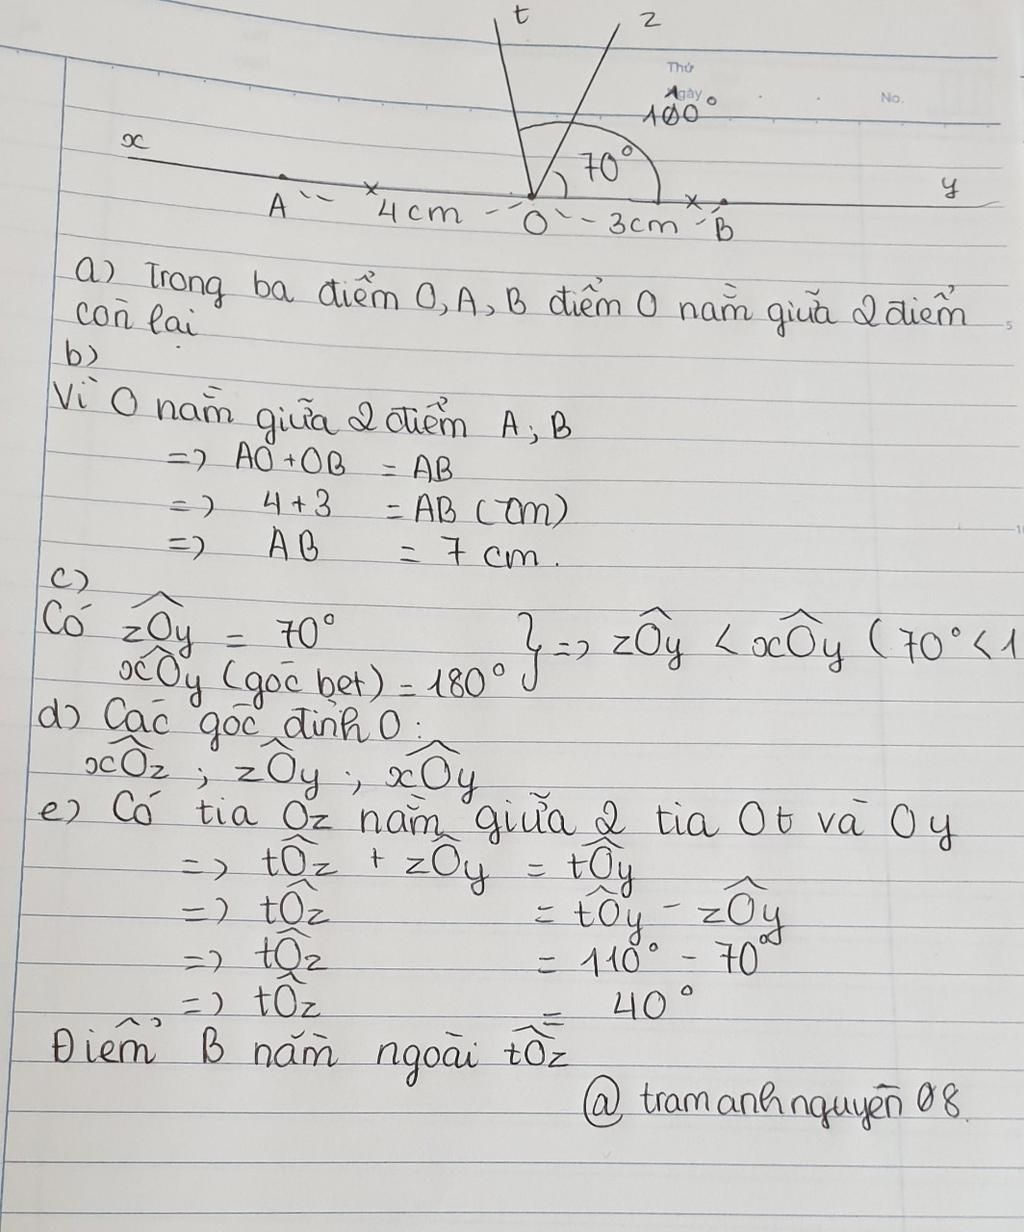 t z
Thứ
Ngày
No.
100°
x
70°
y
A -- 4cm -- O -- 3cm - B
a) Trong ba điểm O, A, B điểm O nằm giữa 2 điểm
còn lại
b)
Vì O nằm giữa 2 điểm A, B
=> AO + OB = AB
=> 4 + 3 = AB (cm)
=> AB = 7 cm.
c)
Có zÔy = 70°
xÔy (góc bẹt) = 180° } => zÔy < xÔy (70° < 1
d) Các góc đỉnh O:
xÔz ; zÔy ; xÔy
e) Có tia Oz nằm giữa 2 tia Ot và Oy
=> tÔz + zÔy = tÔy
=> tÔz = tÔy - zÔy
=> tÔz = 110° - 70°
=> tÔz = 40°
Điểm B nằm ngoài tÔz
@ tramanhnguyen08